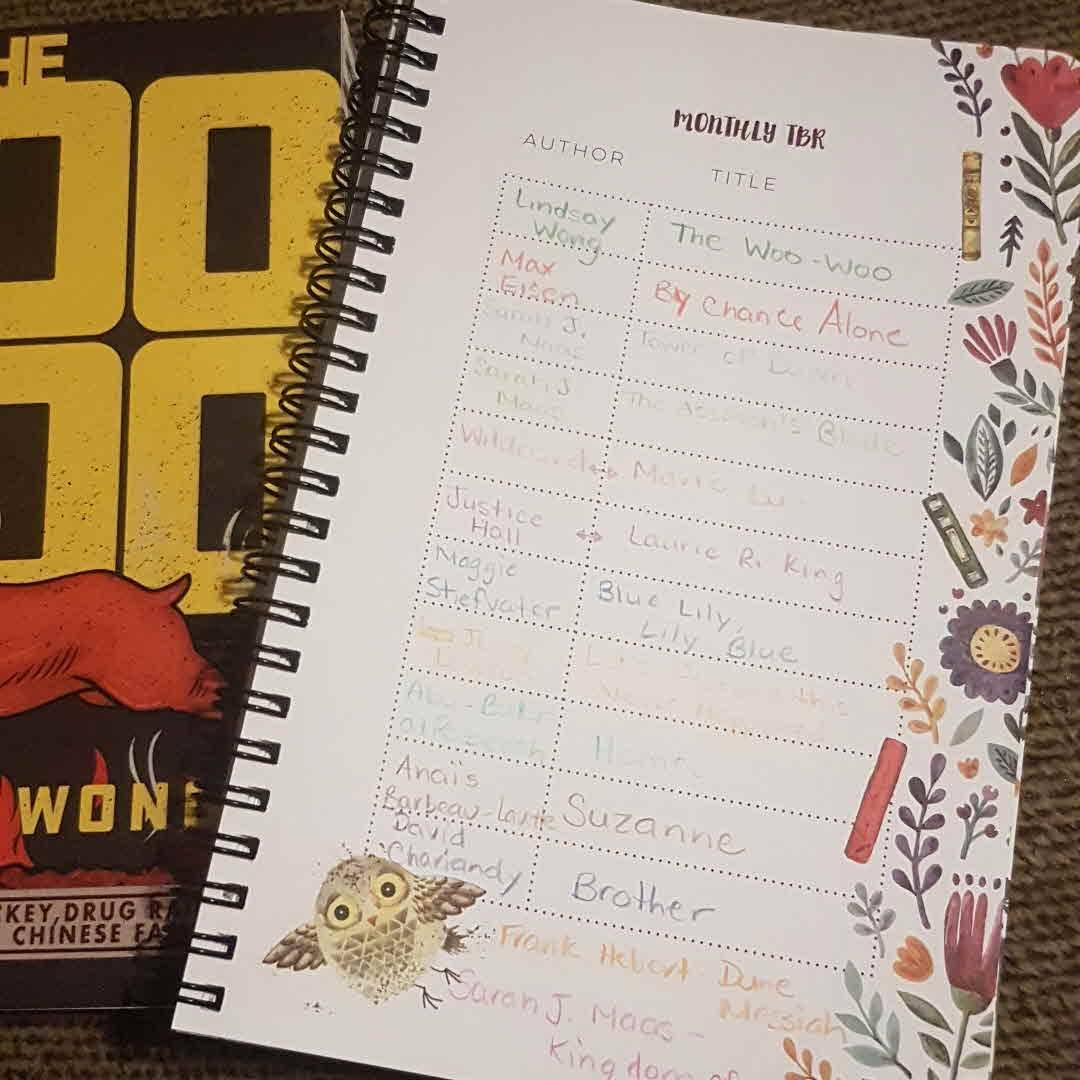 HE
OO
OO
WON
KEY, DRUG RA
CHINESE FA
MONTHLY TBR
AUTHOR TITLE
Lindsay Wong The Woo-Woo
Max Eisen By Chance Alone
Sarah J. Maas Tower of Dawn
Sarah J Maas The Assassin's Blade
Wildcard ↔ Marie Lu
Justice Hall ↔ Laurie R. King
Maggie Stiefvater Blue Lily, Lily Blue
Abu-Bakr
Anaïs Barbeau-Lavalette Suzanne
David Chariandy Brother
Frank Hebert - Dune Messiah
Sarah J. Maas -
Kingdom of